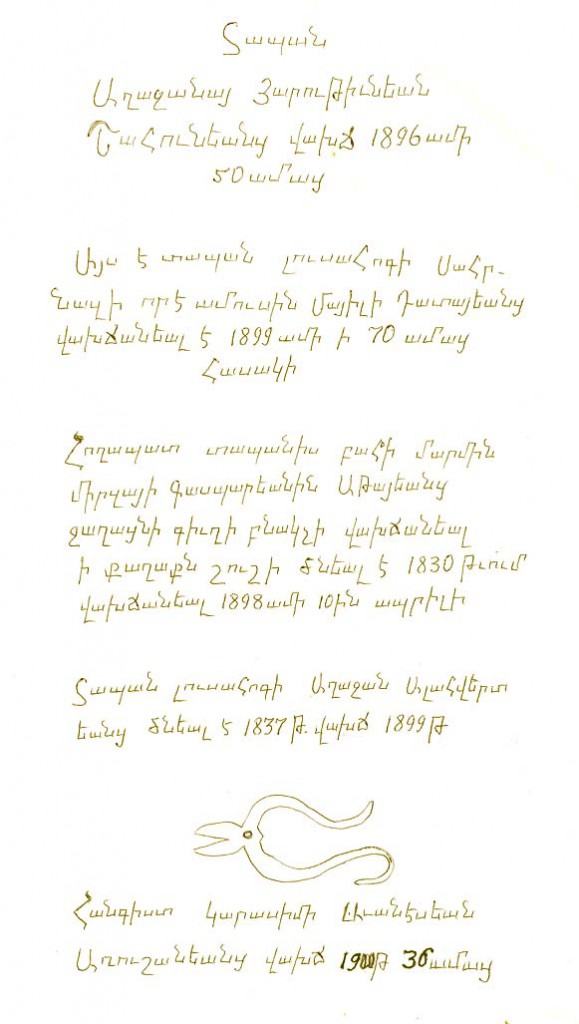 Տապան
Աղաջանայ Յարութիւնեան
Շահունեանց վախճ 1896 ամի
50 ամայ
Այս է տապան լուսահոգի Սահր-
նազի որէ ամուսին Մայիլի Դատայեանց
վախճանեալ է 1899 ամի ի 70 ամայ
հասակի
Հողապատ տապանիս բահի մարմին
միրզայի գասպարեանին Աթայեանց
ջաղացնի գիւղի բնակչի վախճանեալ
ի քաղաքն շուշի ծնեալ է 1830 թւում
վախճանեալ 1898 ամի 10ին ապրիլի
Տապան լուսահոգի Աղաջան Ալահվերտ
եանց ծնեալ է 1837 թ. վախճ 1899 թ
Հանգիստ կարասիմի Աւանէսեան
Աղուշանեանց վախճ 36 ամայ